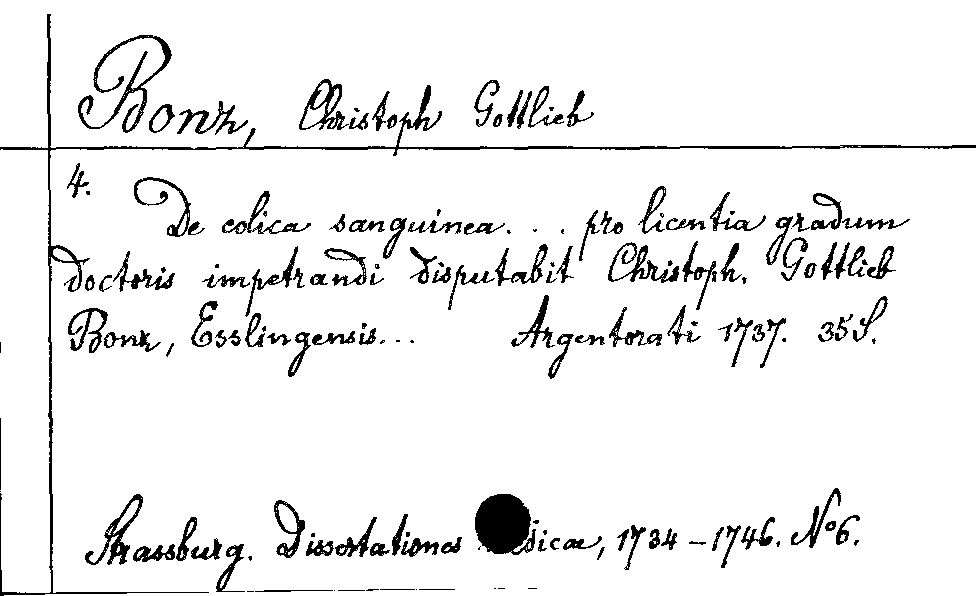 Bonz, Christoph Gottlieb
4.
De colica sanguinea... pro licentia gradum
doctoris impetrandi disputabit Christoph. Gottlieb
Bonz, Esslingensis... Argentorati 1737. 35 S.
Strassburg. Dissertationes medicae, 1734-1746. No 6.